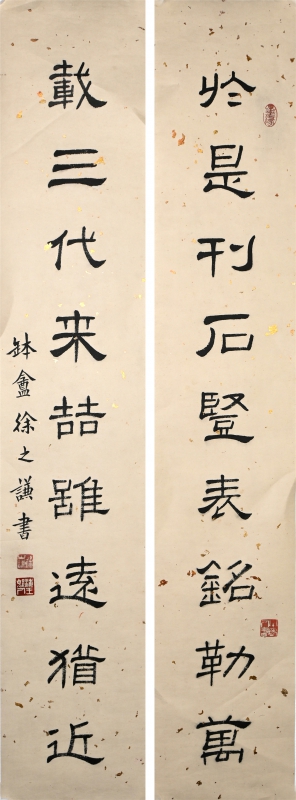 於是刊石豎表銘勒萬
載三代来喆雖遠猶近
缽盦徐之謙書